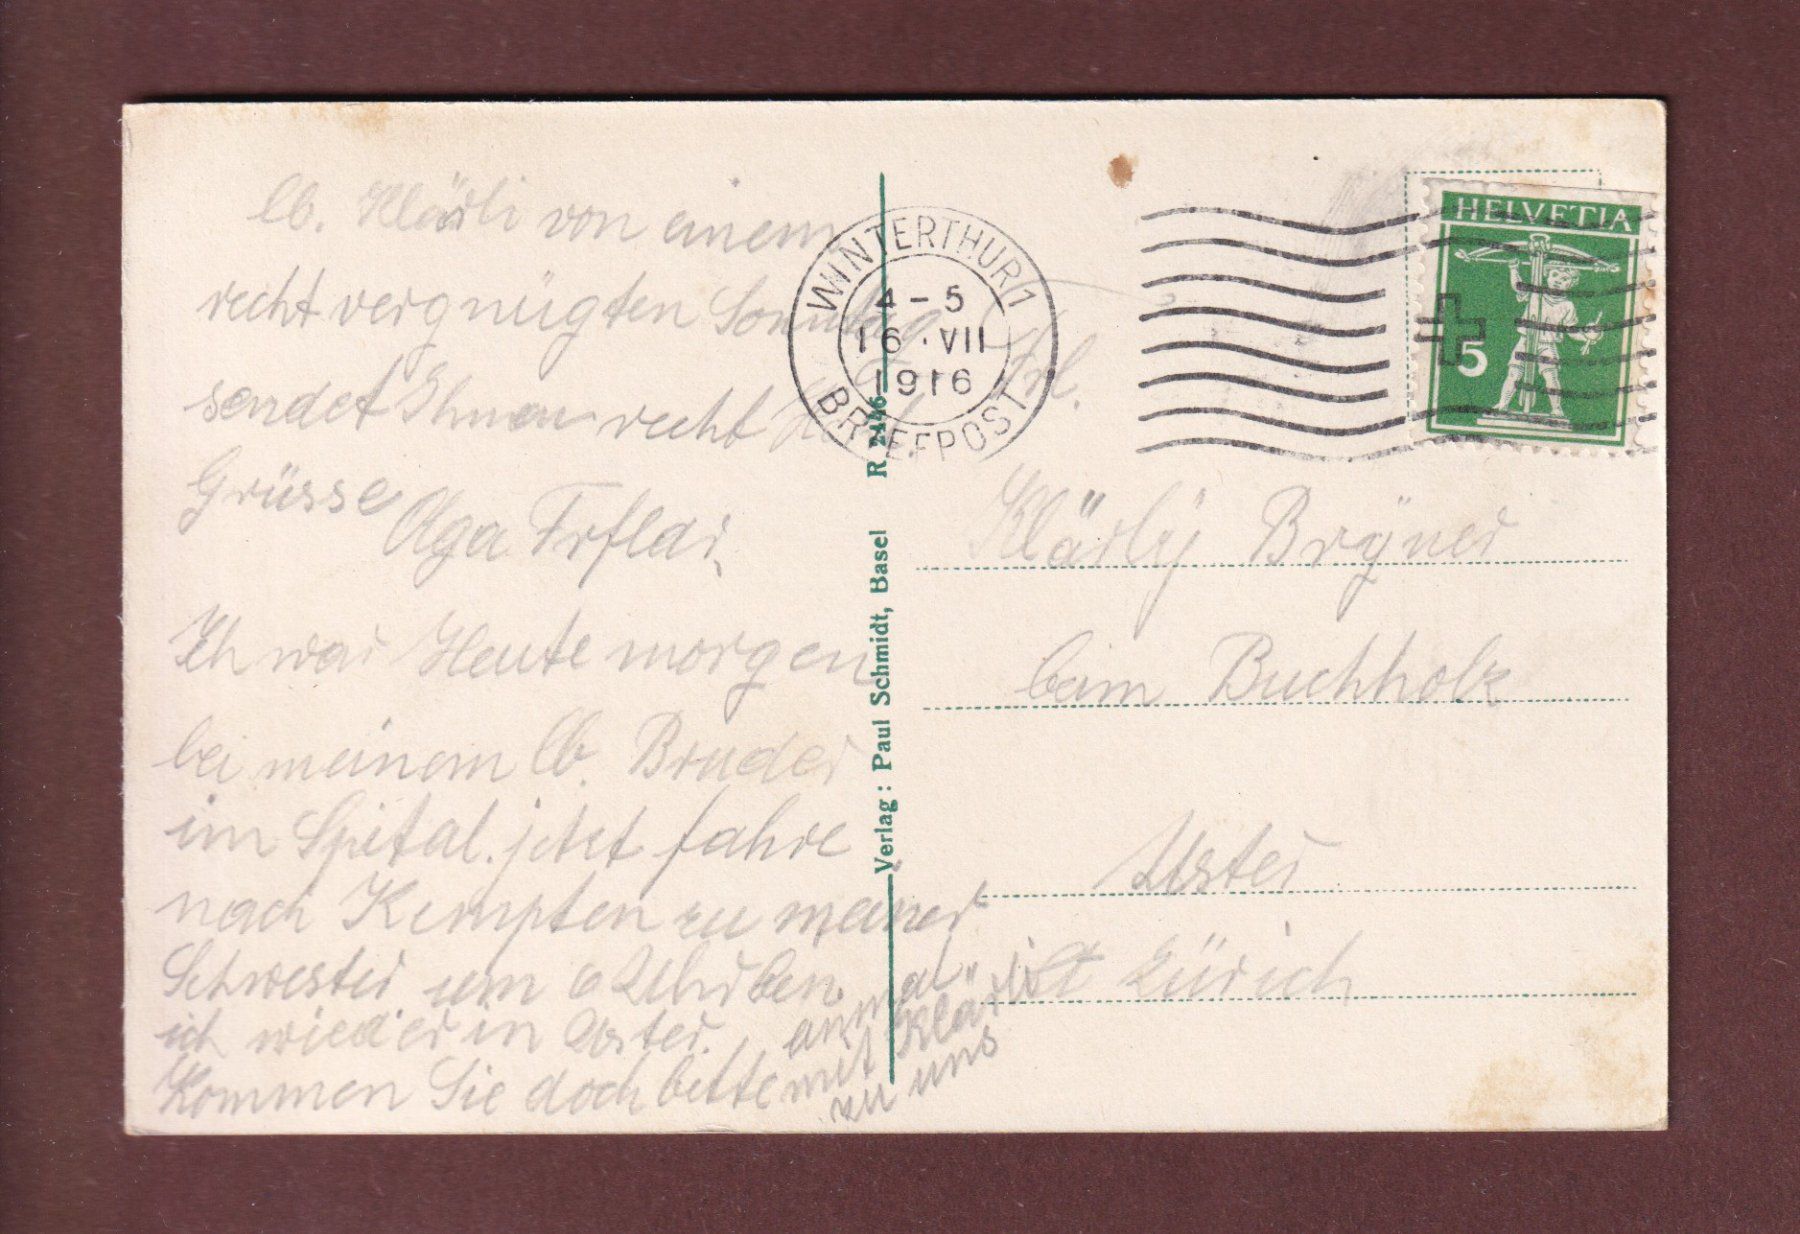 lb. Klärli von einem
recht vergnügten Sonntag
sendet Ihnen recht
Grüsse
Olga
Ich war Heute morgen
bei meinem lb. Bruder
im Spital. jetzt fahre
nach Kempten zu meiner
Schwester um 6 Uhr ben
ich wieder in Uster.
Kommen Sie doch bitte
einmal
mit Klärli
zu uns
Verlag: Paul Schmidt, Basel R 2446
WINTERTHUR 1
4-5
16·VII
1916
BRIEFPOST
HELVETIA
5
Frl.
Klärly Bryner
beim Buchholz
Uster
Kt Zürich